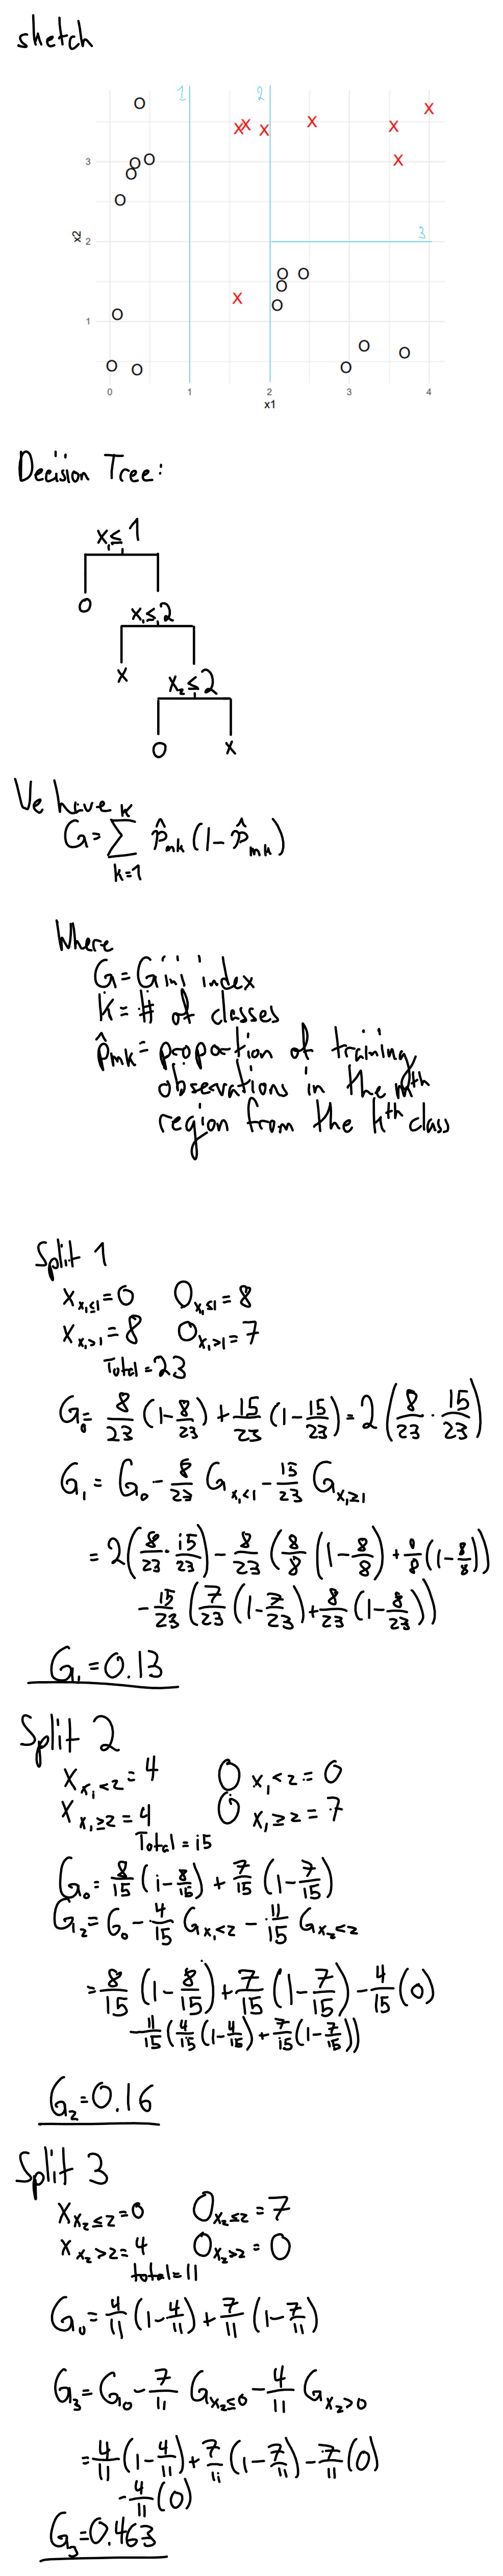 sketch
1
2
3
3
2
1
x2
0 1 2 3 4
x1
Decision Tree:
x₁≤1
O
x₁≤2
X
x₂≤2
O X
We have
G=∑_{k=1}^{K} p̂_mk(1-p̂_mk)
Where
G=Gini index
K=# of classes
p̂_mk=proportion of training
observations in the mth
region from the kth class
Split 1
X_{x₁≤1}=0 O_{x₁≤1}=8
X_{x₁>1}=8 O_{x₁>1}=7
Total=23
G₀=8/23(1-8/23)+15/23(1-15/23)=2(8/23·15/23)
G₁=G₀-8/23 G_{x₁<1}-15/23 G_{x₁≥1}
=2(8/23·15/23)-8/23(8/8(1-8/8)+8/8(1-8/8))
-15/23(7/23(1-7/23)+8/23(1-8/23))
G₁=0.13
Split 2
X_{x₁<2}=4 O_{x₁<2}=0
X_{x₁≥2}=4 O_{x₁≥2}=7
Total=15
G₀=8/15(1-8/15)+7/15(1-7/15)
G₂=G₀-4/15 G_{x₁<2}-11/15 G_{x₂<2}
=8/15(1-8/15)+7/15(1-7/15)-4/15(0)
-11/15(4/15(1-4/15)+7/15(1-7/15))
G₂=0.16
Split 3
X_{x₂≤2}=0 O_{x₂≤2}=7
X_{x₂>2}=4 O_{x₂>2}=0
total=11
G₀=4/11(1-4/11)+7/11(1-7/11)
G₃=G₀-7/11 G_{x₂≤0}-4/11 G_{x₂>0}
=4/11(1-4/11)+7/11(1-7/11)-7/11(0)
-4/11(0)
G₃=0.463